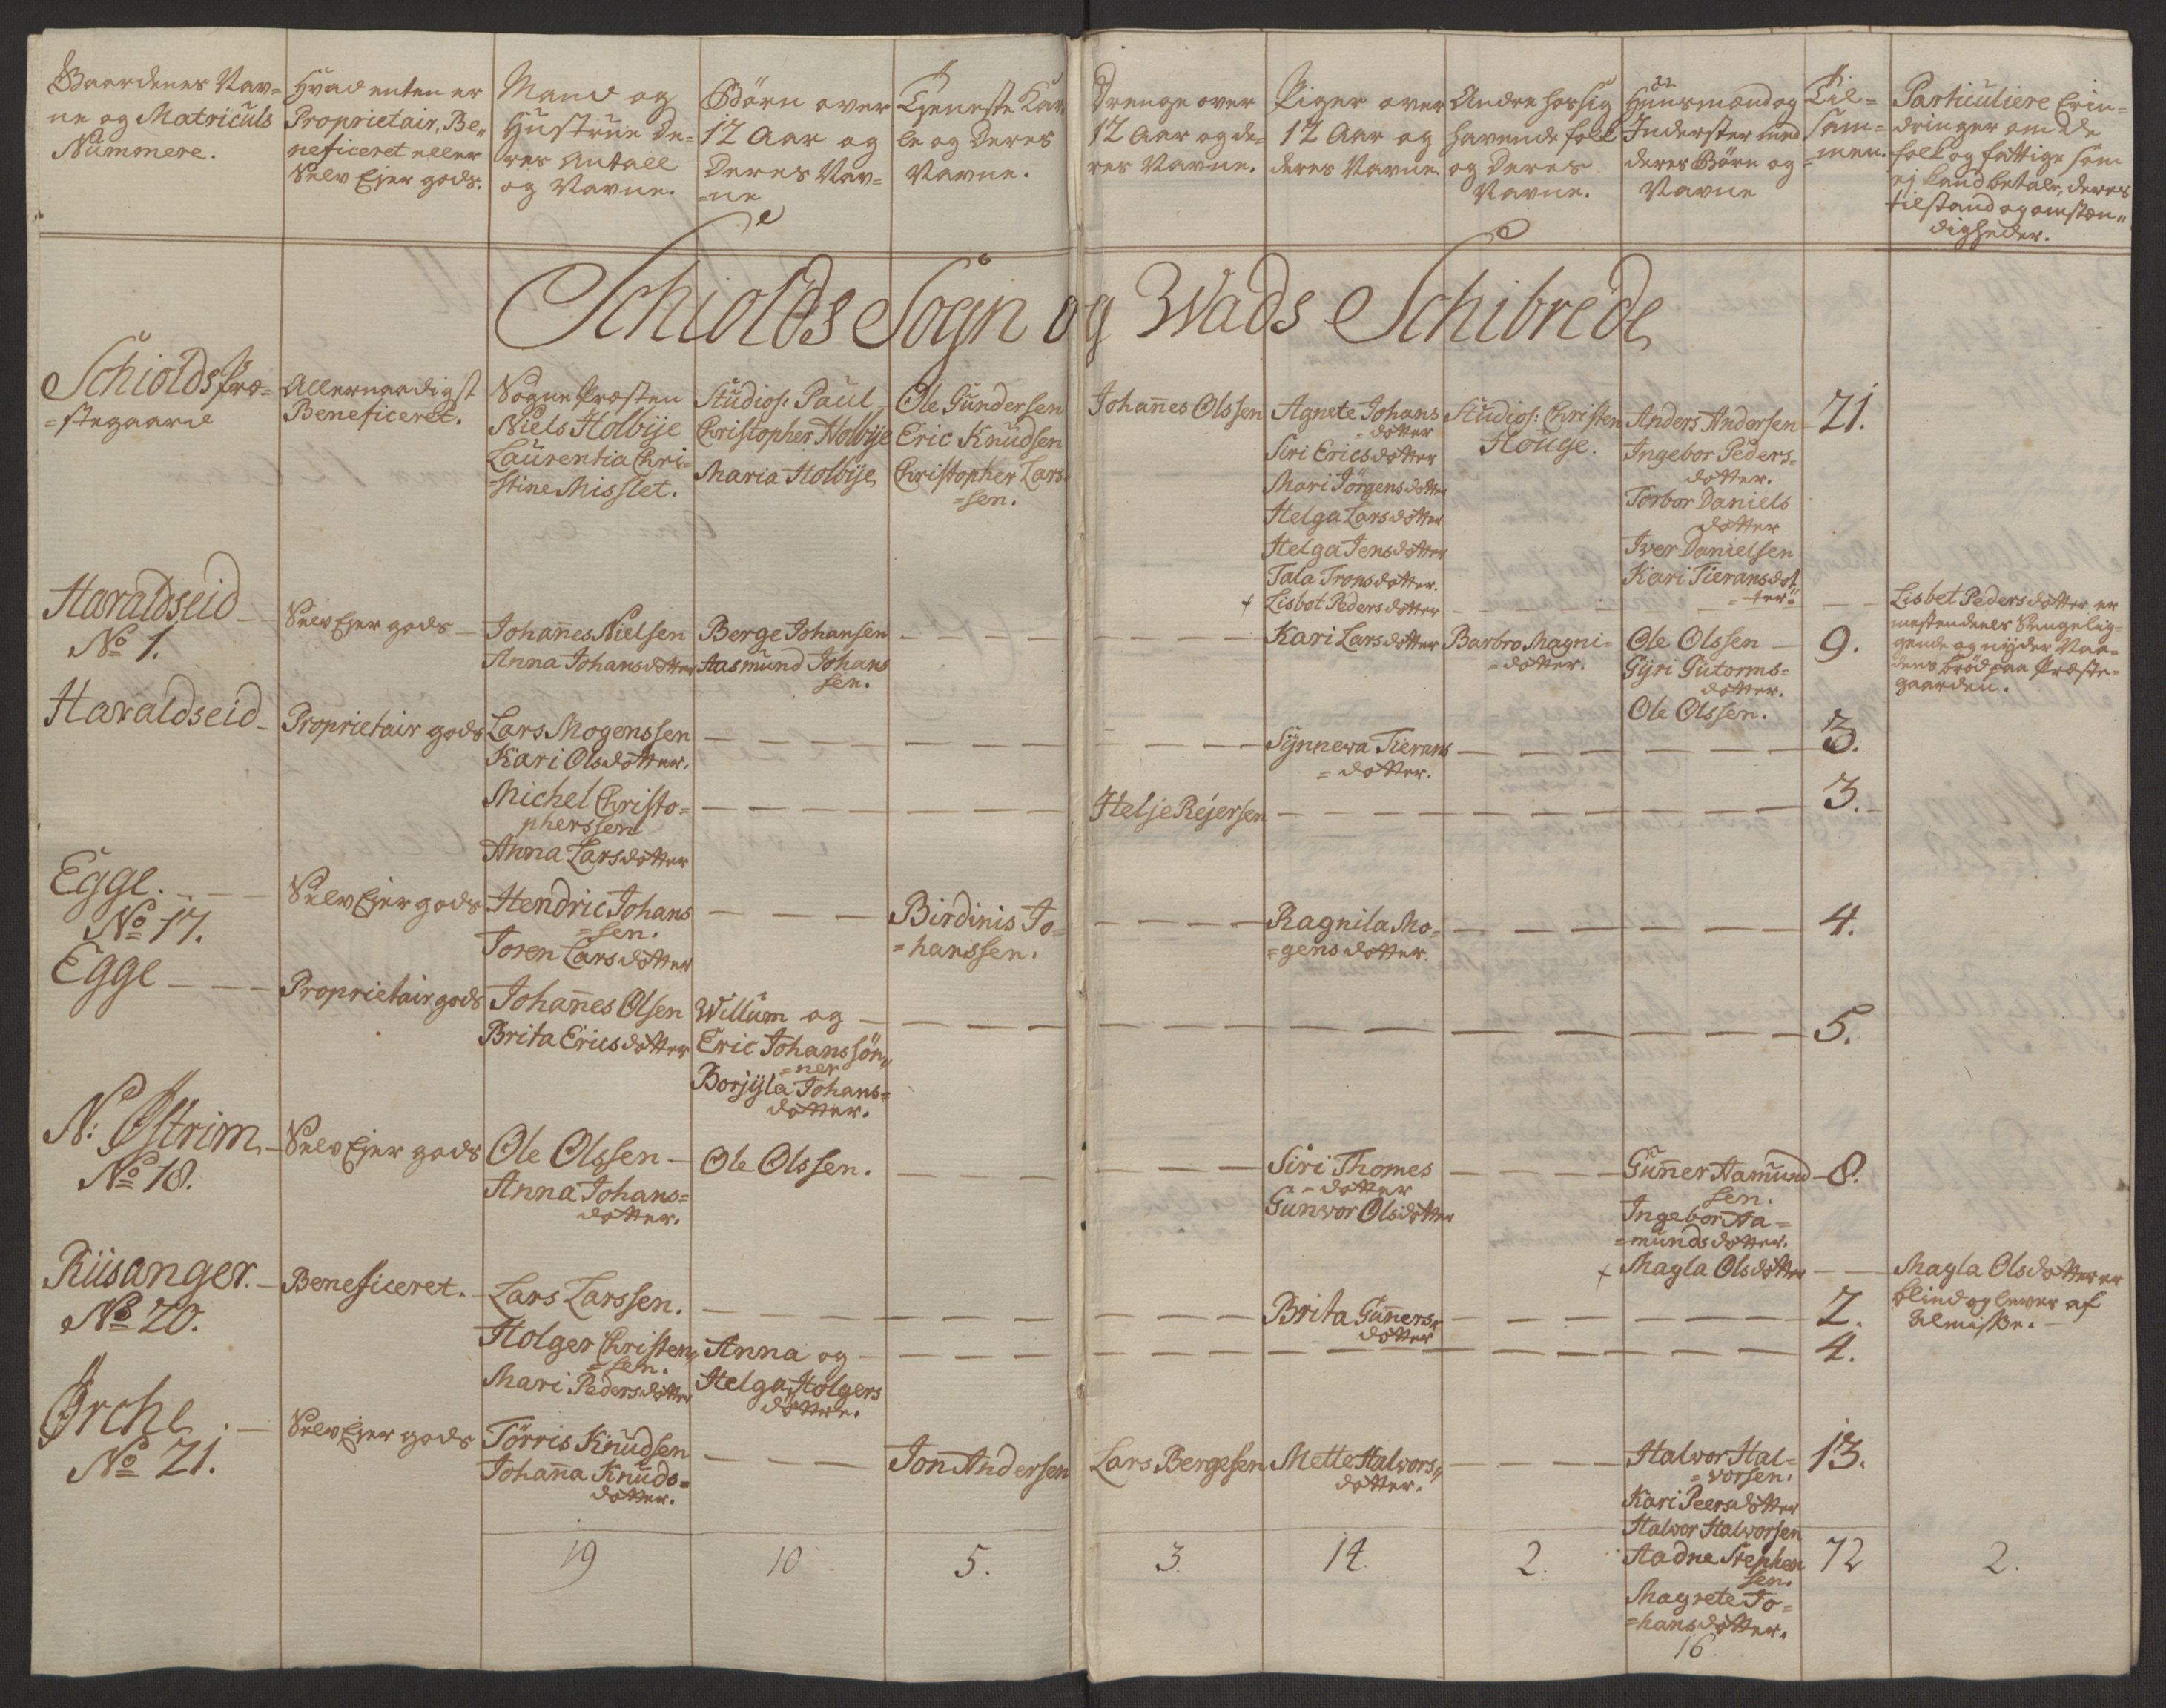 Gaardenes Nav=
ne og Matriculs
Nummere.
Hvad enten er
Proprietair, Be„
neficeret eller
Selv Ejer gods.
Mand og
Hustrue de=
res Antall
og Navne.
Börn over
12 Aar og
Deres Nav=
=ne
Tjeneste Kar
le og Deres
Navne.
Drenge over
12 Aar og de=
res Navne.
Piger over
12 Aar og
deres Navne.
Andre hos sig
havende folk
og Deres
Navne.
Huusmænd og
Inderster med
deres Börn og
Navne
Til=
sam=
=men.
Particuliere Erin=
dringer om de
folk og fattige som
ej kand betale, deres
tilstand og omstæn„
digheder.
Schiolds Sogn og Wads Schibrede
Schiolds Præ=
=stegaard
Allernaadigst
Beneficeret.
Sogne Præsten
Niels Holbije
Laurentia Chri=
=stine Misslet.
Studios: Paul
Christopher Holbije
Maria Holbije
Ole Gundersen
Eric Knudsen
Christopher Lars
=sen.
Johan̄es Olssen
Agnete Johans
=dotter
Siri Ericsdotter
Mari Jörgensdotter
Helga Larsdotter
Helga Jensdotter
Tala Tronsdotter.
+ Lisbet Pedersdotter
Studios: Christen
Houge.
Anders Andersen
Ingebor Peders=
dotter.
Torbor Daniels
dotter
Iver Danielsen
Kari Tieransdot
=ter.
21.
Lisbet Pedersdotter er
mestendeels Sengelig=
gende og nyder Naa=
dens bröd paa Præste=
gaarden.
Haraldseid
No 1.
Selv Ejer gods
Johan̄es Nielsen
Anna Johansdotter
Berge Johansen
Aasmund Johans
sen.
Kari Larsdotter
Barbro Magni=
=dotter.
Ole Olssen
Gyri Gutorms=
dotter.
Ole Olssen.
9.
Haraldseid
Proprietair gods
Lars Mogenssen
Kari Olsdotter.
Synnewa Tierans
=dotter.
3.
Michel Christo=
pherssen
Anna Larsdotter
Helje Rejersen
3.
Egge.
No 17.
Selv Ejer gods
Hendric Johans
=sen.
Joren Larsdotter
Birdinis Jo=
=hanssen.
Ragnila Mo=
=gensdotter.
4.
Egge
Proprietair gods
Johan̄es Olsen
Brita Ericsdotter
Willum og
Eric Johanssön„
=ner
Borjyla Johans=
dotter.
5.
N: Østrim
No 18.
Selv Ejer gods
Ole Olssen
Anna Johans=
dotter.
Ole Olssen.
Siri Thomes
=dotter
Gunvor Olsdotter
Gun̄er Aamund
sen.
Ingebor Aa=
=mundsdotter.
+ Magla Olsdotter
8.
Magla Olsdotter er
blind og lever af
Almisse.
Riisanger.
No 20.
Beneficeret.
Lars Larssen.
Brita Gun̄ers„
dotter
2.
Holger Christen„
=sen.
Mari Pedersdotter
Anna og
Helga Holgers
döttre.
4.
Ørche.
No 21.
Selv Ejer gods
Törris Knudsen
Johan̄a Knuds=
dotter.
Jon Andersen
Lars Bergesen
Mette Halvors„
dotter.
Halvor Hal=
=vorsen.
Kari Peersdotter
Halvor Halvorsen
Aadne Stephen
sen.
Magrete Jo=
=hansdotter.
13.
19
10
5.
3.
14.
2.
16.
72
2.